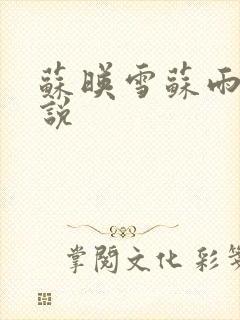 蘇暎雪蘇雨
說
掌閱文化 彩